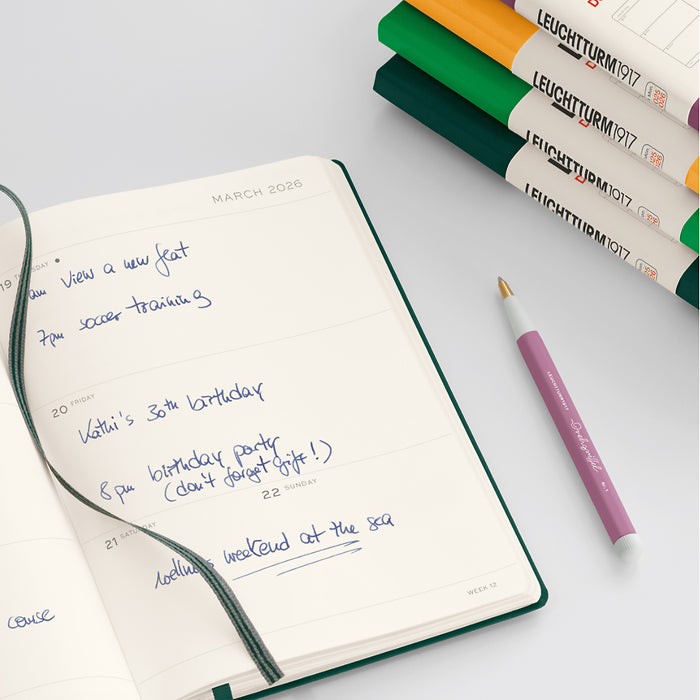 MARCH 2026
19 THURSDAY
am view a new flat
7pm soccer training
20 FRIDAY
Kathi's 30th birthday
8pm birthday party
(don't forget gift!)
22 SUNDAY
21 SATURDAY
wellness weekend at the sea
WEEK 12
course
LEUCHTTURM1917
LEUCHTTURM1917
LEUCHTTURM1917
LEUCHTTURM1917
LEUCHTTURM1917
Drehgriffel
Nr. 1